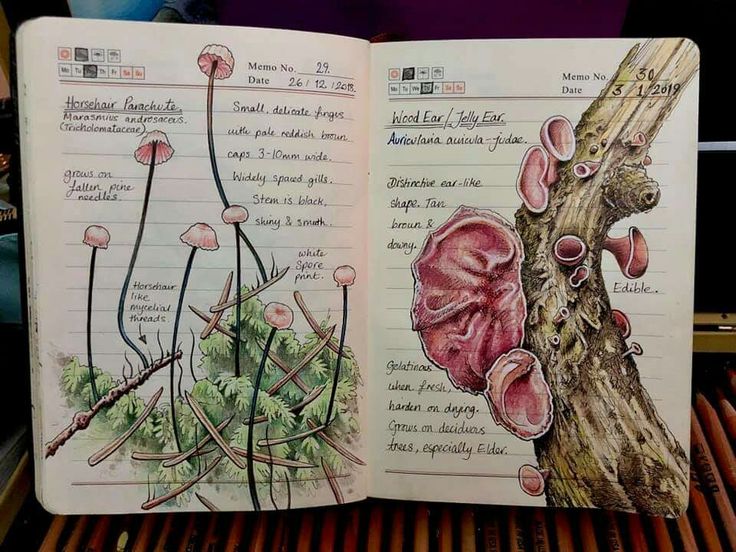 Memo No. 29.
Mo Tu We Th Fr Sa Su
Date 26 / 12 / 2018.
Horsehair Parachute.
Marasmius androsaceus.
(Tricholomataceae)
grows on
fallen pine
needles.
Small, delicate fungus
with pale reddish brown
caps 3-10mm wide.
Widely spaced gills.
Stem is black,
shiny & smooth.
white
Spore
print.
Horsehair
like
mycelial
threads.
Memo No. 30
Mo Tu We Th Fr Sa Su
Date 3 1 2019
Wood Ear / Jelly Ear.
Auricularia auricula-judae.
Distinctive ear-like
shape. Tan
brown &
downy.
Edible.
Gelatinous
when fresh,
harden on drying.
Grows on deciduous
trees, especially Elder.